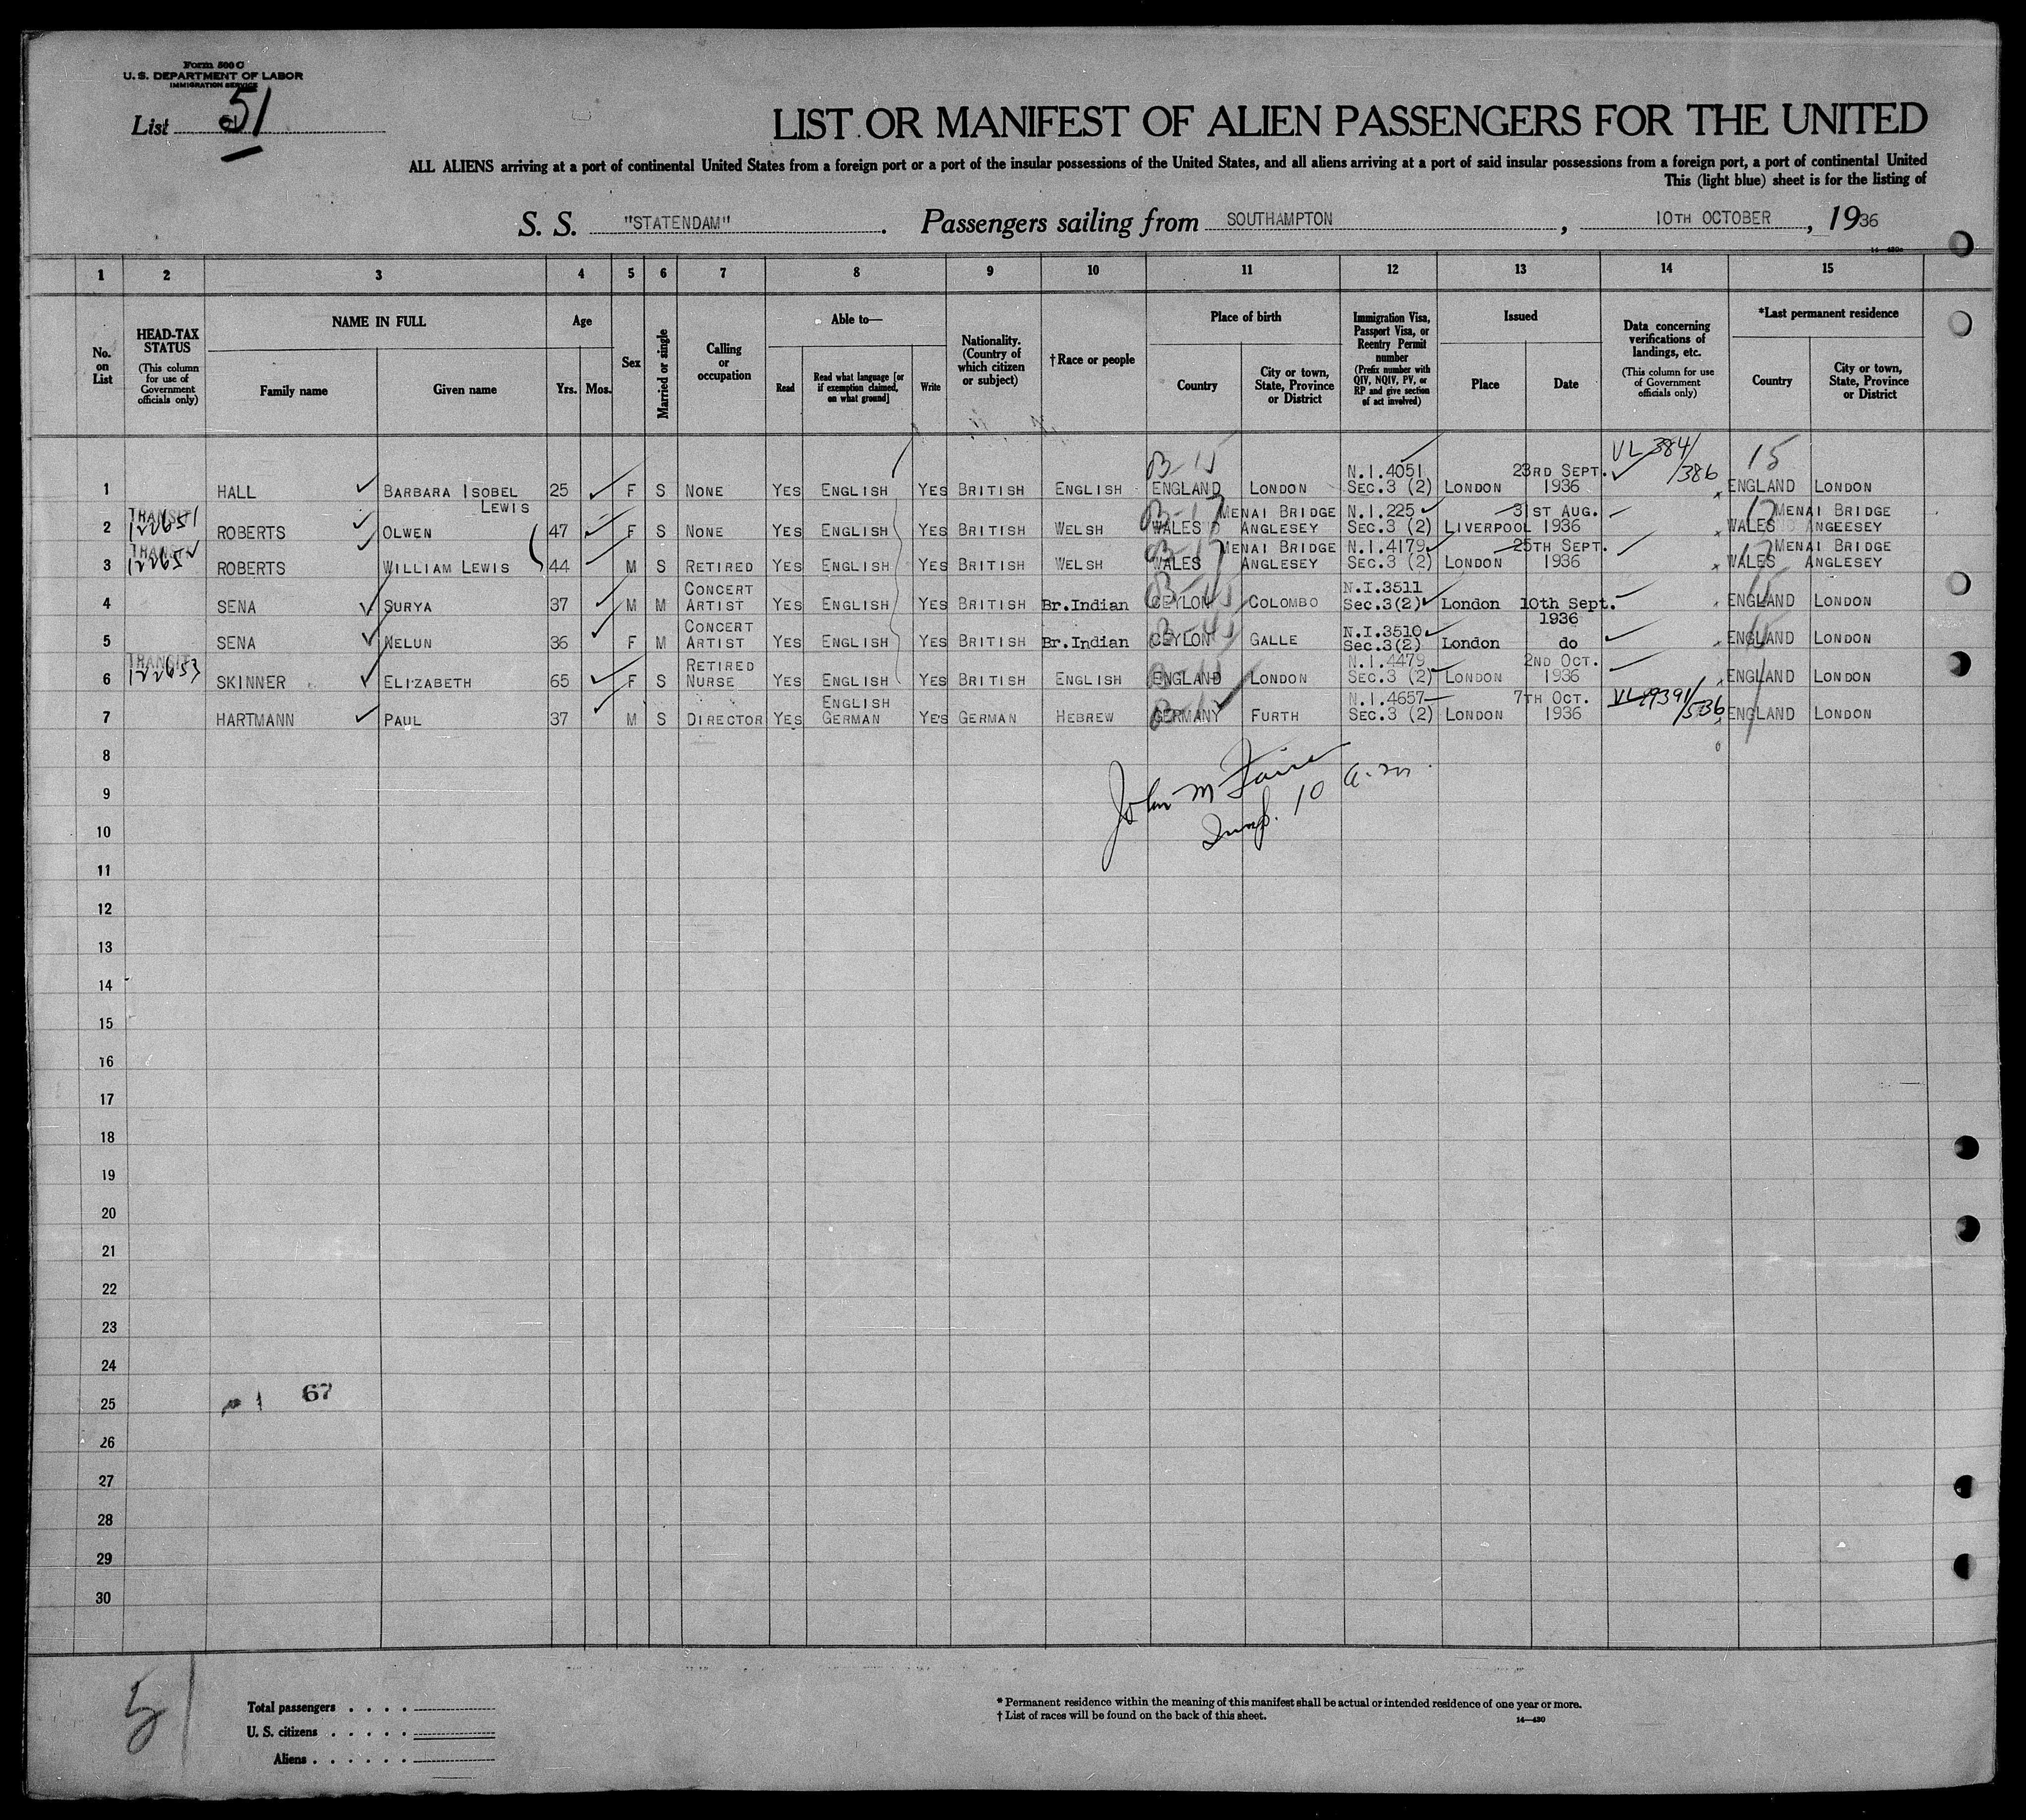 Form 500 C
U. S. DEPARTMENT OF LABOR
IMMIGRATION SERVICE
List 51
LIST OR MANIFEST OF ALIEN PASSENGERS FOR THE UNITED
ALL ALIENS arriving at a port of continental United States from a foreign port or a port of the insular possessions of the United States, and all aliens arriving at a port of said insular possessions from a foreign port, a port of continental United
This (light blue) sheet is for the listing of
S. S. "STATENDAM". Passengers sailing from SOUTHAMPTON, 10TH OCTOBER, 1936
1 2 3 4 5 6 7 8 9 10 11 12 13 14 15
No. on List
HEAD-TAX STATUS
(This column for use of Government officials only)
NAME IN FULL
Family name
Given name
Age
Yrs. Mos.
Sex
Married or single
Calling or occupation
Able to—
Read
Read what language [or if exemption claimed, on what ground]
Write
Nationality. (Country of which citizen or subject)
†Race or people
Place of birth
Country
City or town, State, Province or District
Immigration Visa, Passport Visa, or Reentry Permit number
(Prefix number with QIV, NQIV, PV, or RP and give section of act involved)
Issued
Place
Date
Data concerning verifications of landings, etc.
(This column for use of Government officials only)
*Last permanent residence
Country
City or town, State, Province or District
1 HALL BARBARA ISOBEL LEWIS 25 F S NONE YES ENGLISH YES BRITISH ENGLISH B-15 ENGLAND LONDON N.I.4051 SEC.3 (2) LONDON 23RD SEPT. 1936 VL 384/386 15 ENGLAND LONDON
2 TRANSIT 122651 ROBERTS OLWEN 47 F S NONE YES ENGLISH YES BRITISH WELSH B-17 WALES MENAI BRIDGE ANGLESEY N.I.225 SEC.3 (2) LIVERPOOL 31ST AUG. 1936 17 WALES MENAI BRIDGE ANGEESEY
3 TRANSIT ROBERTS WILLIAM LEWIS 44 M S RETIRED YES ENGLISH YES BRITISH WELSH B-17 WALES MENAI BRIDGE ANGLESEY N.I.4179 SEC.3 (2) LONDON 25TH SEPT. 1936 17 WALES MENAI BRIDGE ANGLESEY
4 SENA SURYA 37 M M CONCERT ARTIST YES ENGLISH YES BRITISH Br.Indian CEYLON COLOMBO N.I.3511 Sec.3(2) London 10th Sept. 1936 15 ENGLAND LONDON
5 SENA NELUN 36 F M CONCERT ARTIST YES ENGLISH YES BRITISH Br.Indian CEYLON GALLE N.I.3510 Sec.3(2) London do 15 ENGLAND LONDON
6 TRANSIT 122653 SKINNER ELIZABETH 65 F S RETIRED NURSE YES ENGLISH YES BRITISH ENGLISH ENGLAND LONDON N.I.4479 SEC.3 (2) LONDON 2ND OCT. 1936 ENGLAND LONDON
7 HARTMANN PAUL 37 M S DIRECTOR YES ENGLISH GERMAN YES GERMAN HEBREW GERMANY FURTH N.I.4657 SEC.3 (2) LONDON 7TH OCT. 1936 ENGLAND LONDON
8
John M
9
10 a.m.
10
11
12
13
14
15
16
17
18
19
20
21
22
23
24
25 67
26
27
28
29
30
51
Total passengers . . . .
U. S. citizens . . . . .
Aliens . . . . . .
* Permanent residence within the meaning of this manifest shall be actual or intended residence of one year or more.
† List of races will be found on the back of this sheet.
14—430